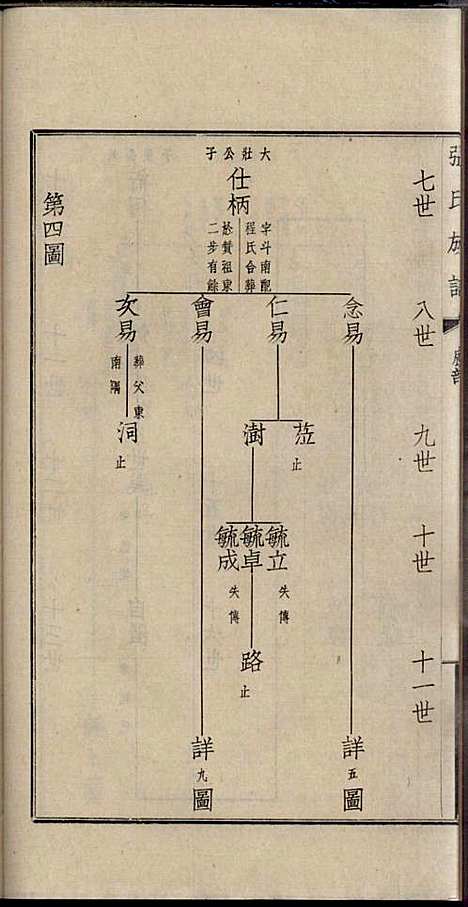 張氏族譜
七世
八世
九世
十世
十一世
大壯公子
仕柄
字斗南配
程氏合葬
於贊祖東
二步有餘
念易
詳五圖
仁易
茳
止
澍
毓立
失傳
毓卓
路
止
毓成
失傳
會易
詳九圖
友易
葬父東
南隔
洞
止
第四圖